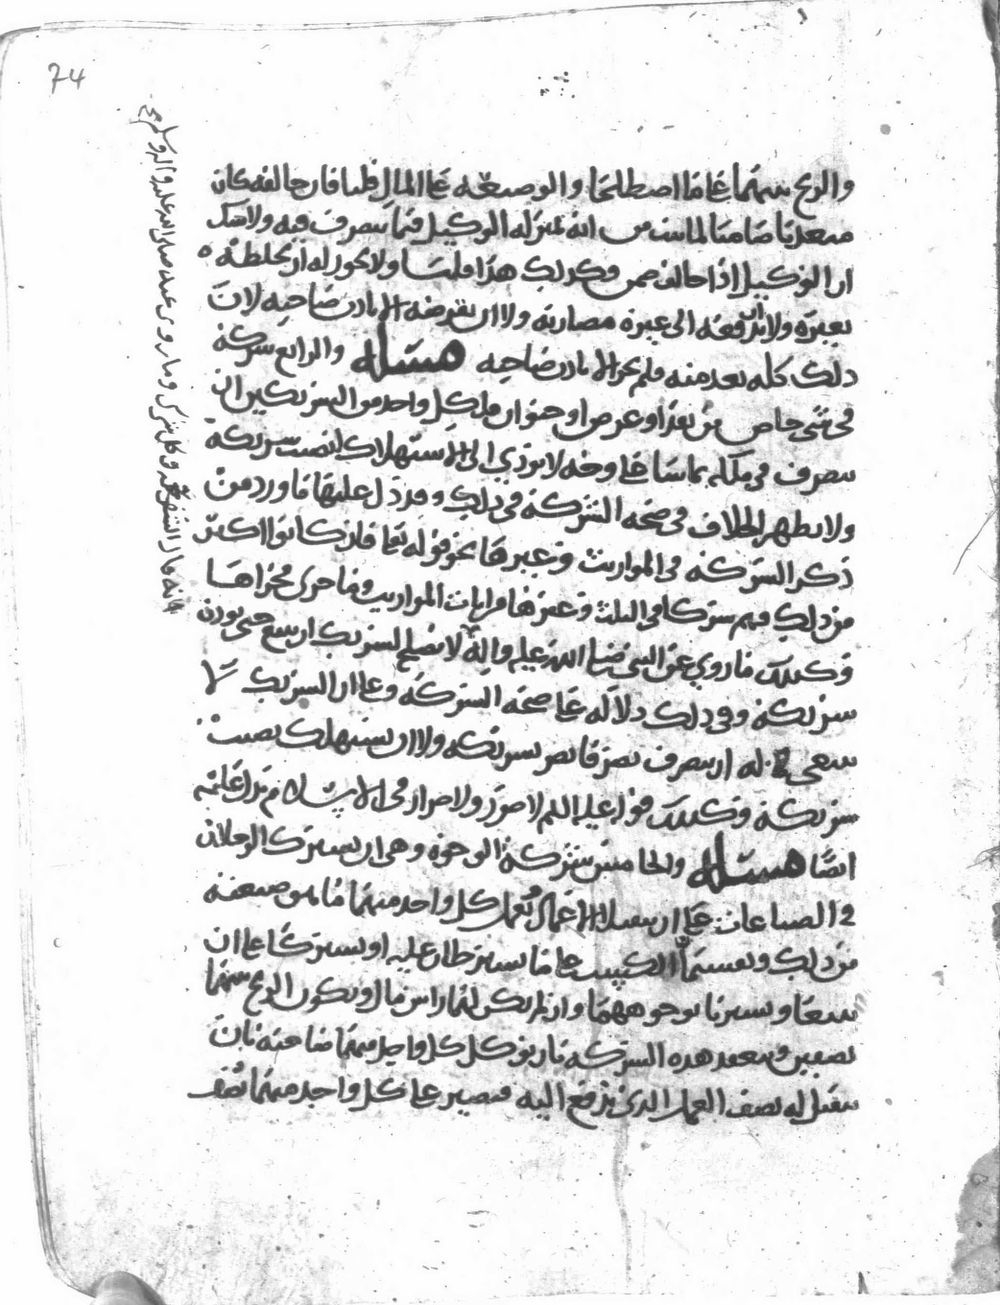 74
والربح بينهما على ما اصطلحا والوضيعة على المال قلنا فان خالفه كان
متعديا ضامنا لما بينت من انه بمنزلة الوكيل فيما يتصرف فيه ولا شك
ان الوكيل اذا خالف ضمن وكذلك هذا قلنا ولا يجوز له ان يخلطه
بغيره ولا ان يدفعه الى غيره مضاربة ولا ان يقرضه الا باذن صاحبه لان
ذلك كله تعد منه فلم يجز الا باذن صاحبه مسئلة والرابع شركة
في شيء خاص من نقد او عرض او حيوان فلكل واحد من الشريكين ان
يتصرف في ملكه بما شاء على وجه لا يؤدي الى الاستهلاك لنصيب شريكه
ولا يظهر الخلاف في صحة الشركة في ذلك وقد دل عليها ما ورد من
ذكر الشركة في المواريث وغيرها نحو قوله تعالى فان كانوا اكثر
من ذلك فهم شركاء في الثلث وغيرها من ايات المواريث وما جرى مجراها
وكذلك ما روي عن النبي صلى الله عليه واله لا يصلح لشريك ان يبيع حتى يوذن
شريكه وفي ذلك دلالة على صحة الشركة وعلى ان الشريك لا
ينبغي له ان يتصرف تصرفا يضر بشريكه ولا ان يستهلك نصيب
شريكه وكذلك قوله عليه السلم لا ضرر ولا ضرار في الاسلام يدل عليه
ايضا مسئلة والخامس شركة الوجوه وهي ان يشترك الرجلان
في الصناعات على ان يتقبلا الاعمال ويعمل كل واحد منهما ما هو صنعته
من ذلك ويقتسما الكسب على ما يشترطان عليه او يشتركا على ان
يبيعا ويشتريا بوجوههما وان لم يكن لهما راس مال ويكون الربح بينهما
نصفين وتنعقد هذه الشركة بان يوكل كل واحد منهما صاحبه بان
يتقبل له نصف العمل الذي يدفع اليه فيصير على كل واحد منهما نصف